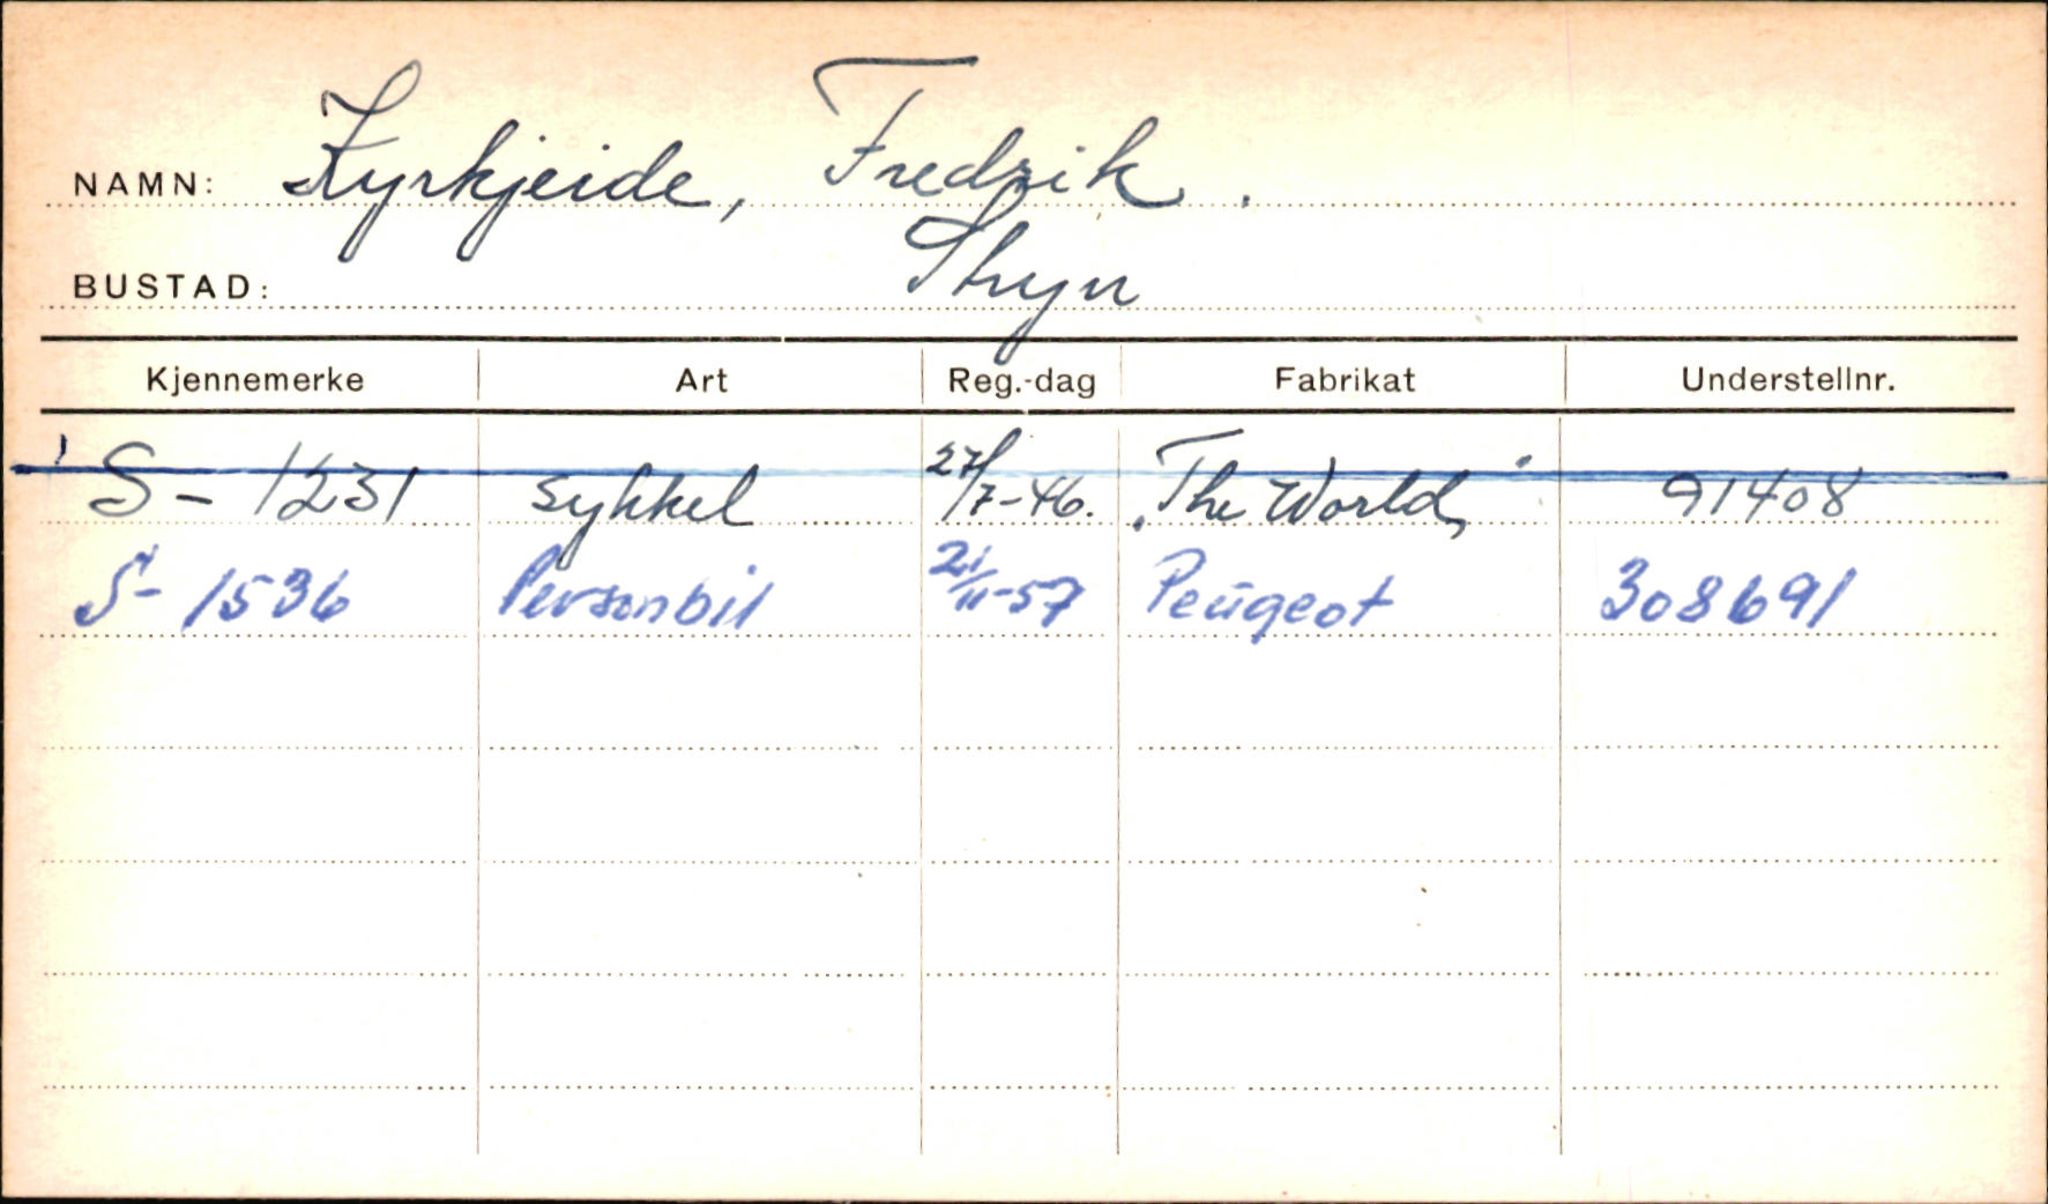 NAMN: Kyrkjeide, Fredrik.
BUSTAD: Stryn
Kjennemerke Art Reg.-dag Fabrikat Understellnr.
S- 1231 sykkel 27/7-46. "The World" 91408
S- 1536 Personbil 21/11-57 Peugeot 308691